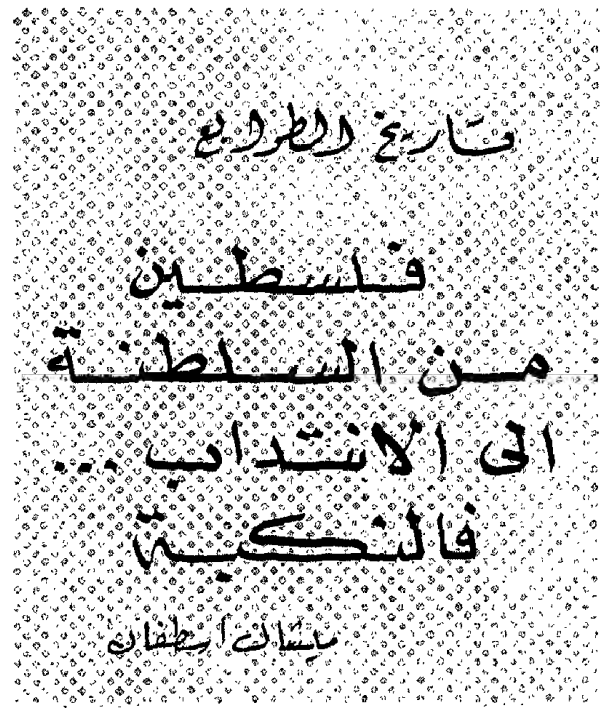 تاريخ الطوابع
فلسطين
من السلطنة
الى الانتداب ...
فالنكبة
ميشال اسطفان